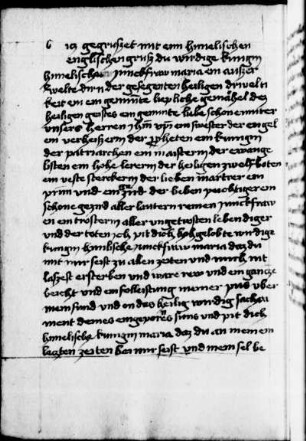 is gegrüszet mit eim himelischen
englischen grus du wirdige kungin
himelische junckfraw maria ein auszer
welte dirn der gesegenten heiligen drivelti
keit ein geminte liepliche gemahel des
heiligen geistes ein geminte liebe schone muter
unsers herren ein swester der engel
ein verheisserin der propheten ein kungin
der patriarchen ein maisterin der ewange
listen ein hohe lererin der heiligen zwolfboten
ein veste stercker der lieben martrer ein
und ein der beber peichtiger ein
schone aller lautern reinen junckfraw
en ein trosterin aller ungetrosten lebendiger
und der toten ich pit dich hohgelobte wirdige
kungin himlische junckfraw maria daz du
mit mir seist zu allen zeiten und mich nit
laszest ersterben und ware rew und ein gancze
beicht und ein folleistung meiner pus uber
mein sund und on das heilig wirdig sacha
ment deines eingepornes suns und pit dich
himelische kungin maria daz du an meinem
leczten zeiten bei mir seist und mein sel be